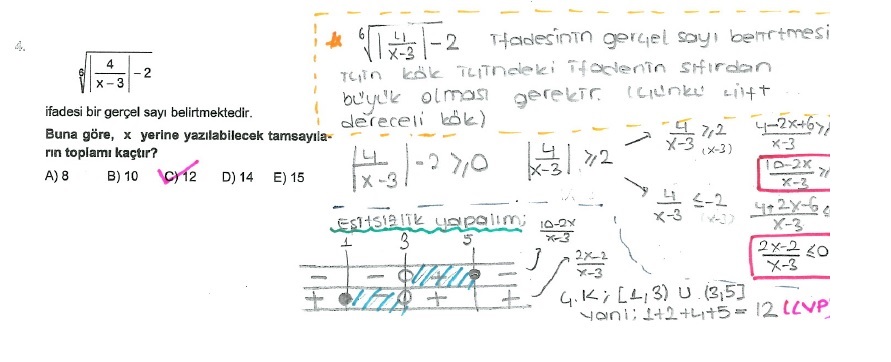 4.
⁶√(|4/(x-3)| - 2)
ifadesi bir gerçel sayı belirtmektedir.
Buna göre, x yerine yazılabilecek tamsayıla-
rın toplamı kaçtır?
A) 8 B) 10 C) 12 D) 14 E) 15
* ⁶√(|4/(x-3)| - 2) ifadesinin gerçel sayı belirtmesi
için kök içindeki ifadenin sıfırdan
büyük olması gerekir. (Çünkü çift
dereceli kök)
|4/(x-3)| - 2 ≥ 0
|4/(x-3)| ≥ 2
4/(x-3) ≥ 2
(x-3)
4/(x-3) ≤ -2
(x-3)
(4-2x+6)/(x-3) ≥
(10-2x)/(x-3) ≥
(4+2x-6)/(x-3) ≤
(2x-2)/(x-3) ≤ 0
Eşitsizlik yapalım;
1 3 5
- - + -
+ - + +
(10-2x)/(x-3)
(2x-2)/(x-3)
Ç.K; [1,3) ∪ (3,5]
yani; 1+2+4+5 = 12 (CVP)